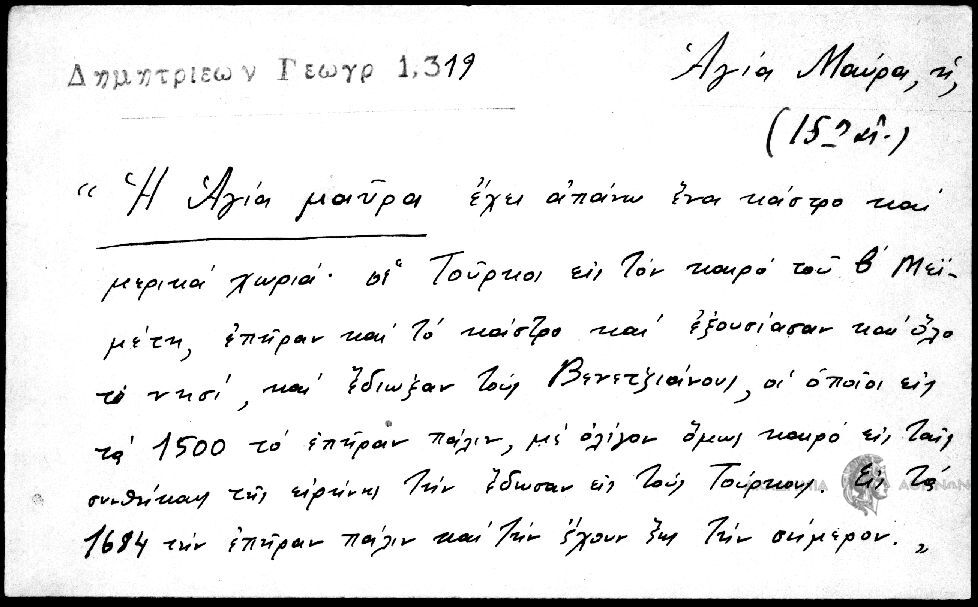 Δημητριεων Γεωγρ 1,319
Ἁγία Μαύρα, ἡ,
(15ος αἰ.)
“ Ἡ Ἁγία μαῦρα ἔχει ἀπάνω ἕνα κάστρο καὶ
μερικὰ χωριά· οἱ Τοῦρκοι εἰς τὸν καιρὸ τοῦ β′ Μεϊ-
μέτη, ἐπῆραν καὶ τὸ κάστρο καὶ ἐξουσίασαν καὶ ὅλο
τὸ νησί, καὶ ἔδιωξαν τοὺς Βενετζιάνους, οἱ ὁποῖοι εἰς
τὰ 1500 τὸ ἐπῆραν πάλιν, μὲ ὀλίγον ὅμως καιρὸ εἰς ταῖς
συνθήκαις τῆς εἰρήνης τὴν ἔδωσαν εἰς τοὺς Τούρκους. Εἰς τὰ
1684 τὴν ἐπῆραν πάλιν καὶ τὴν ἔχουν ἕως τὴν σήμερον. „
ΑΘΗΝΩΝ